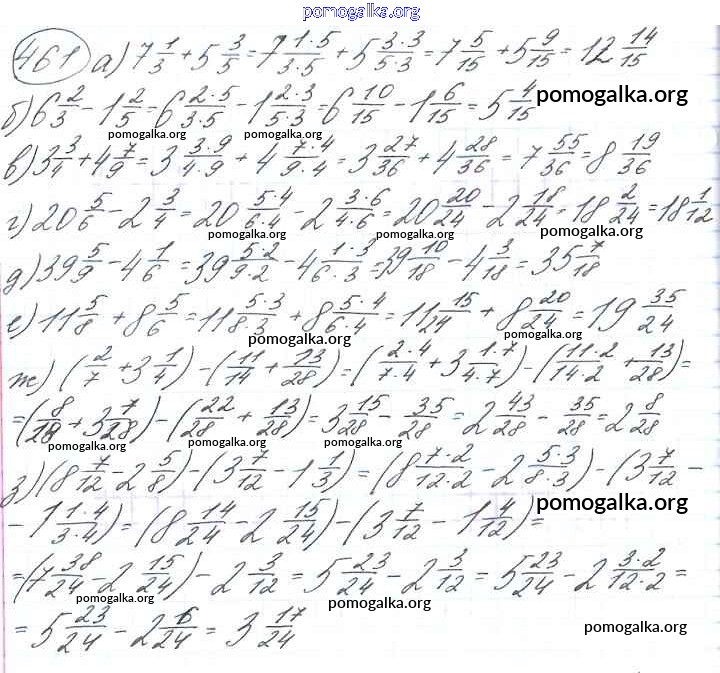 pomogalka.org
461 а) 7 1/3 + 5 3/5 = 7 1·5/3·5 + 5 3·3/5·3 = 7 5/15 + 5 9/15 = 12 14/15
pomogalka.org
б) 6 2/3 - 1 2/5 = 6 2·5/3·5 - 1 2·3/5·3 = 6 10/15 - 1 6/15 = 5 4/15 pomogalka.org
pomogalka.org pomogalka.org
в) 3 3/4 + 4 7/9 = 3 3·9/4·9 + 4 7·4/9·4 = 3 27/36 + 4 28/36 = 7 55/36 = 8 19/36
pomogalka.org
г) 20 5/6 - 2 3/4 = 20 5·4/6·4 - 2 3·6/4·6 = 20 20/24 - 2 18/24 = 18 2/24 = 18 1/12
pomogalka.org pomogalka.org
д) 39 5/9 - 4 1/6 = 39 5·2/9·2 - 4 1·3/6·3 = 39 10/18 - 4 3/18 = 35 7/18
е) 11 5/8 + 8 5/6 = 11 5·3/8·3 + 8 5·4/6·4 = 11 15/24 + 8 20/24 = 19 35/24
pomogalka.org pomogalka.org
ж) (2/7 + 3 1/4) - (11/14 + 13/28) = (2·4/7·4 + 3 1·7/4·7) - (11·2/14·2 + 13/28) =
= (8/28 + 3 7/28) - (22/28 + 13/28) = 3 15/28 - 35/28 = 2 43/28 - 35/28 = 2 8/28
pomogalka.org pomogalka.org
з) (8 7/12 - 2 5/8) - (3 7/12 - 1 1/3) = (8 7·2/12·2 - 2 5·3/8·3) - (3 7/12 -
pomogalka.org
- 1 1·4/3·4) = (8 14/24 - 2 15/24) - (3 7/12 - 1 4/12) =
= (7 38/24 - 2 15/24) - 2 3/12 = 5 23/24 - 2 3/12 = 5 23/24 - 2 3·2/12·2 =
pomogalka.org pomogalka.org
= 5 23/24 - 2 6/24 = 3 17/24
pomogalka.org